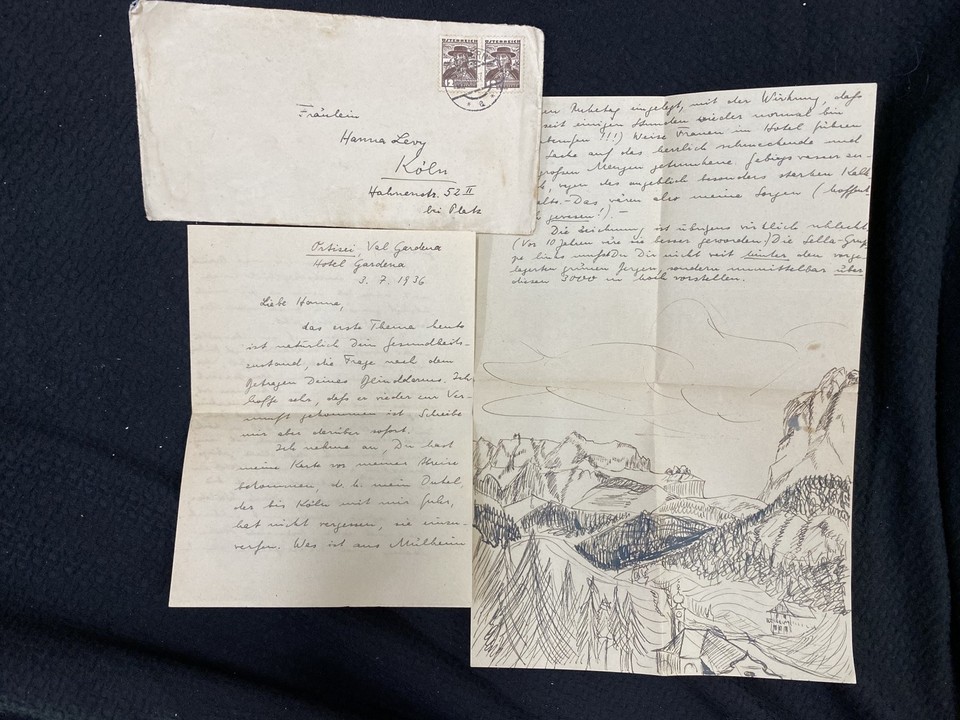 ÖSTERREICH ÖSTERREICH
Fräulein
Hanna Levy
Köln
Hahnenstr. 52 II
bei Platz
Ortisei, Val Gardena
Hotel Gardena
3. 7. 1936
Liebe Hanna,
das erste Thema heute
ist natürlich Dein Gesundheits-
zustand, die Frage nach dem
Betragen Deines Blinddarms. Ich
hoffe sehr, daß er wieder zur Ver-
nunft gekommen ist. Schreibe
mir aber darüber sofort.
Ich nehme an, Du hast
meine Karte vor meiner Abreise
bekommen, d. h. mein Onkel,
der bis Köln mit mir fuhr,
hat nicht vergessen, sie einzu-
werfen. Was ist aus Mülheim
Ruhetag eingelegt, mit der Wirkung, daß
seit einigen Stunden wieder normal bin
!!!) Weise Frauen im Hotel führen
Sache auf das herrlich schmeckende und
großen Mengen getrunkene Gebirgswasser zu-
wegen des angeblich besonders starken Kalk
Das wären also meine Sorgen (hoffent
gewesen!). –
Die Zeichnung ist übrigens wirklich schlecht
(Vor 10 Jahren wäre sie besser geworden.) Die Sella-Grup-
pe links mußt Du Dir nicht weit hinter den vorge-
lagerten grünen Bergen, sondern unmittelbar über
diesen 3000 m hoch vorstellen.